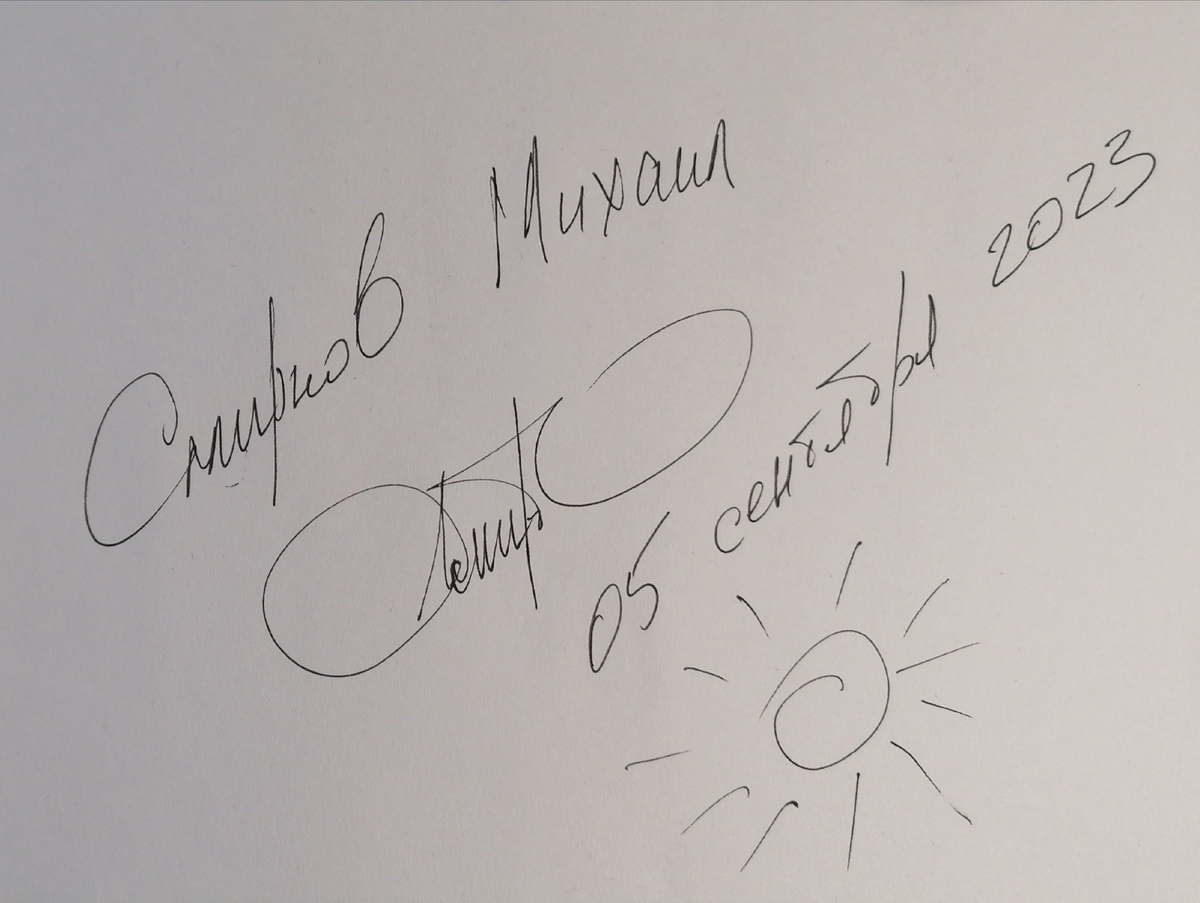 Смирнов Михаил
05 сентября 2023